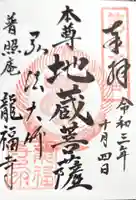 奉拝
令和三年
十月四日
本尊
地蔵菩薩
弘法大師
普照庵
龍福寺